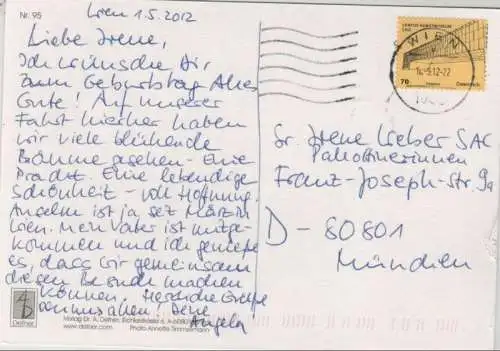 Nr. 95
Wien 1.5.2012
Liebe Irene,
Ich wünsche Dir
zum Geburtstag Alles
Gute! Auf unserer
Fahrt hierher haben
wir viele blühende
Bäume gesehen - Eine
Pracht. Eine lebendige
Schönheit - voll Hoffnung.
Anselm ist ja seit März in
Wien. Mein Vater ist mitge-
kommen und ich genieße
es, dass wir gemeinsam
diesen Besuch machen
können. Herzliche Grüße
von uns allen. Deine
Angela
Verlag Dr. A. Deifner
www.deifner.com Photo Annette Timmermann
Deifner
70
Österreich
WIEN
Sr. Irene Weber SAC
Pallottinerinnen
Franz-Joseph-Str. 9a
D - 80801
München